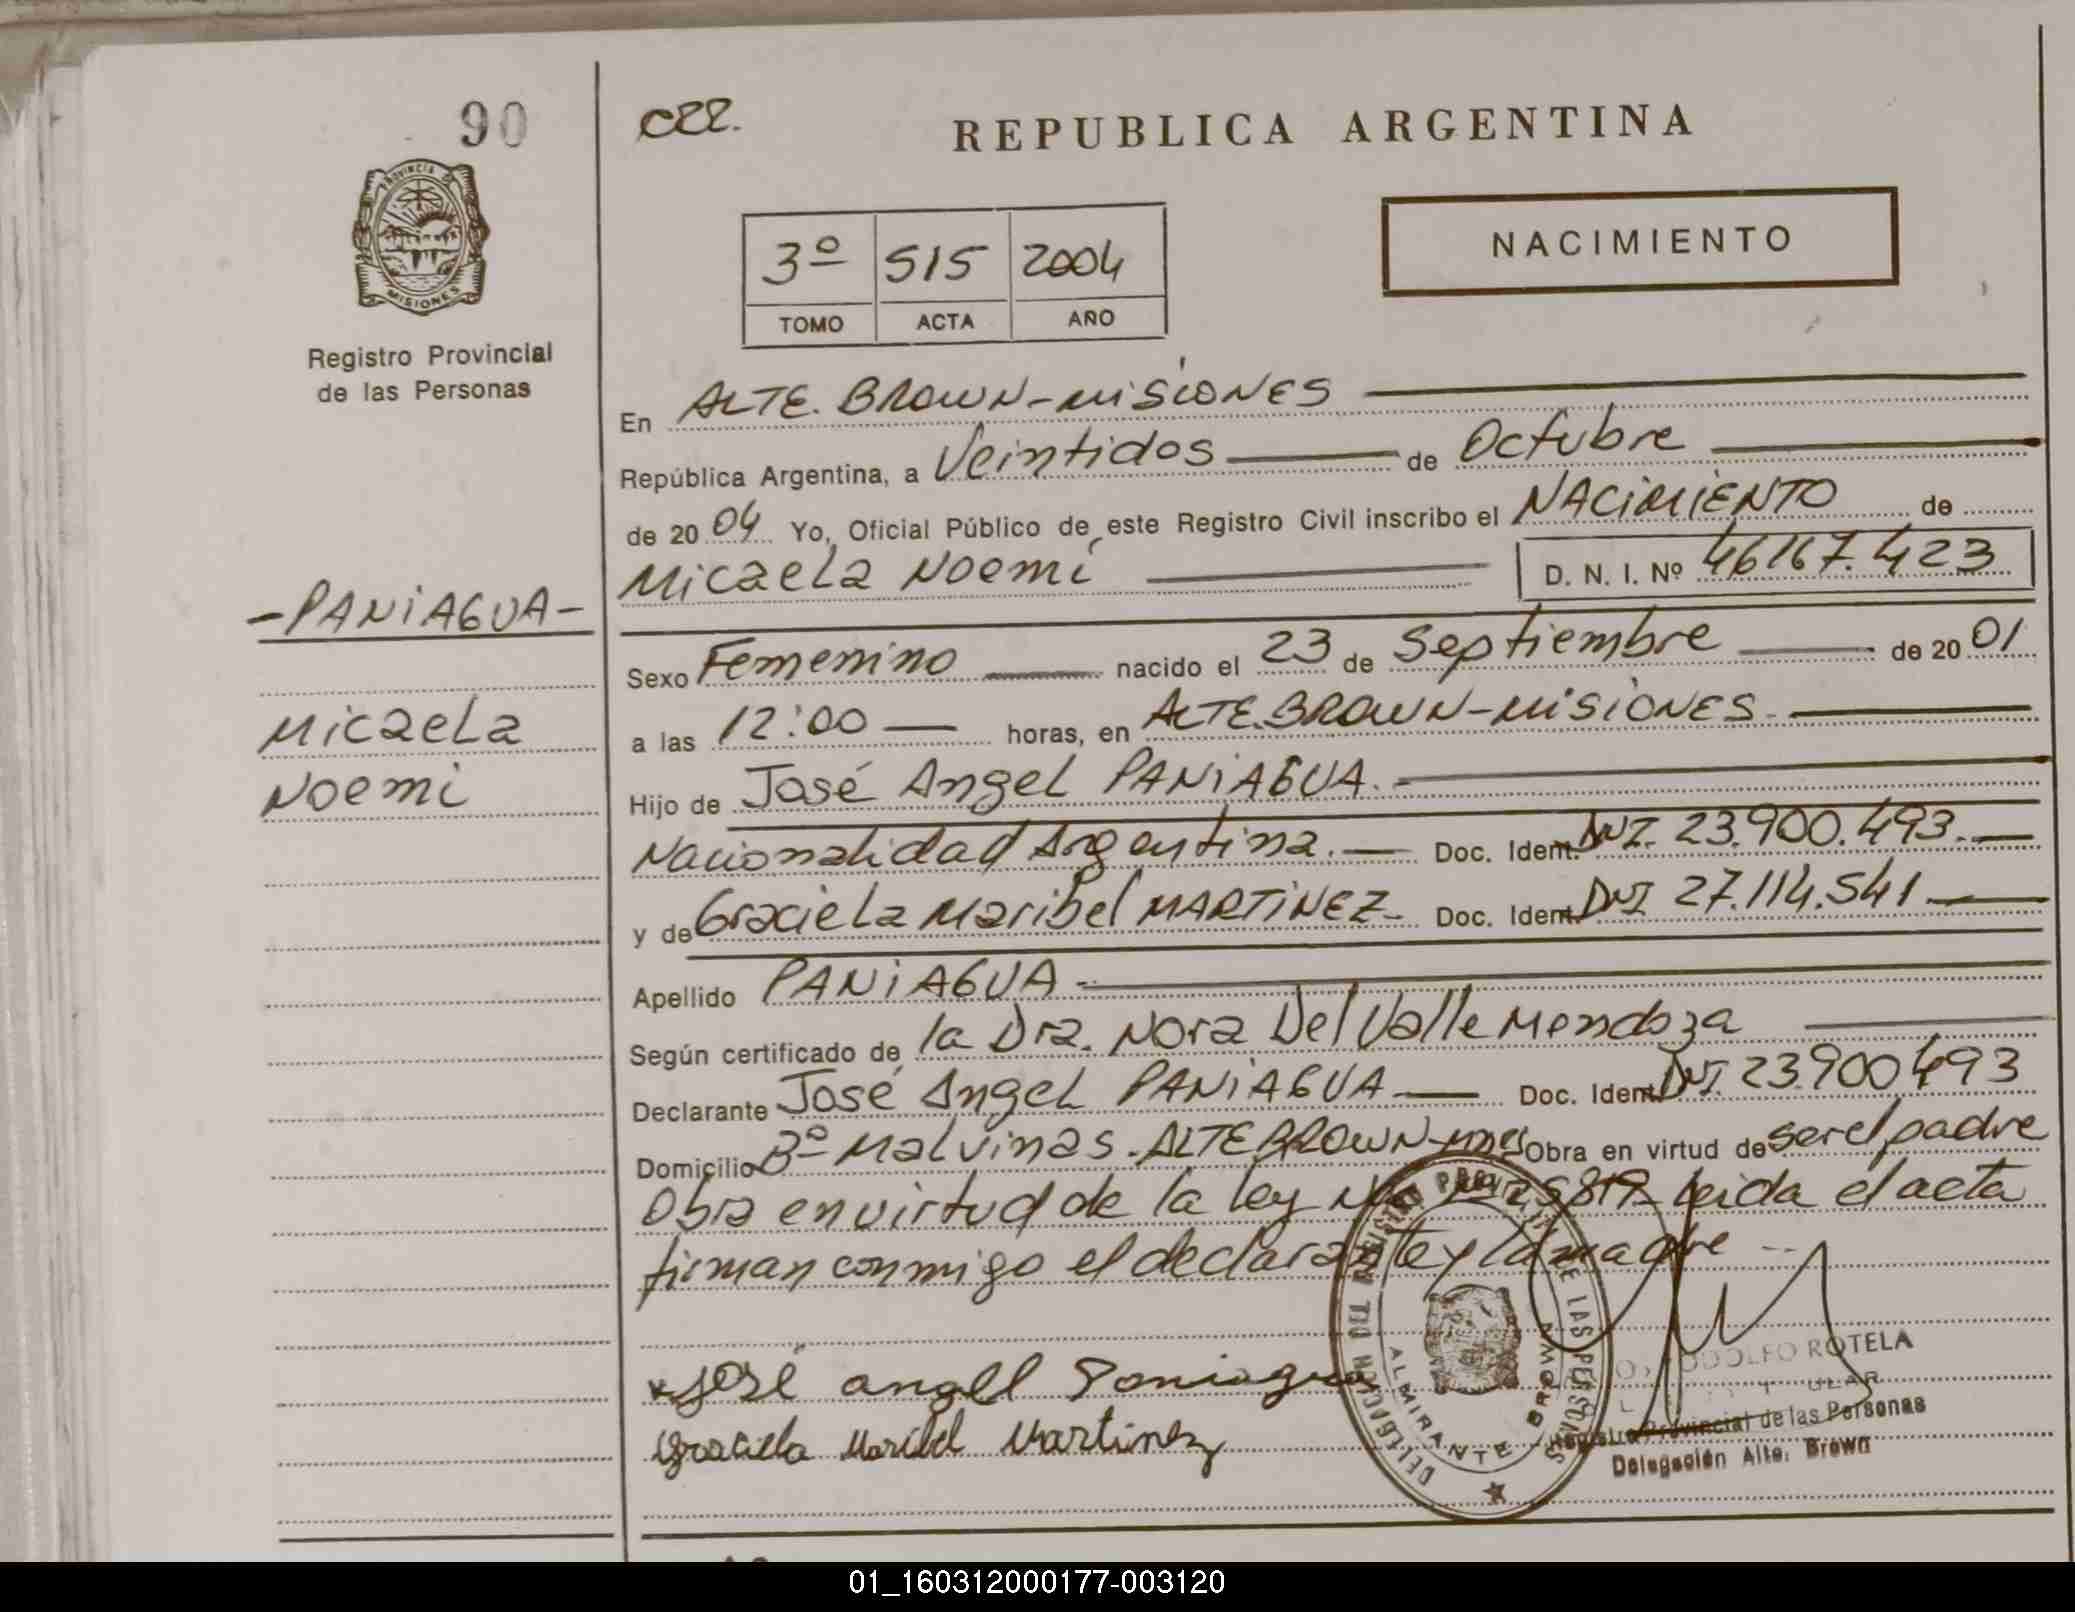 90
C22.
REPUBLICA ARGENTINA
PROVINCIA D
MISIONES
Registro Provincial
de las Personas
3º 515 2004
TOMO ACTA AÑO
NACIMIENTO
En ALTE. BROWN-MISIONES
República Argentina, a Veintidos de Octubre
de 20 04 Yo, Oficial Público de este Registro Civil inscribo el NACIMIENTO de
Micaela Noemí D. N. I. Nº 46167.423
-PANIAGUA-
Micaela
Noemi
Sexo Femenino nacido el 23 de Septiembre de 20 01
a las 12:00 horas, en ALTE.BROWN-MISIONES.
Hijo de José Angel PANIAGUA.
Nacionalidad Argentina. Doc. Ident. DNI. 23.900.493.
y de Graciela Maribel MARTINEZ Doc. Ident. DNI 27.114.541
Apellido PANIAGUA
Según certificado de la Dra. Nora Del Valle Mendoza
Declarante José Angel PANIAGUA Doc. Ident. DNI. 23.900493
Domicilio Bº Malvinas. ALTE BROWN-Mnes Obra en virtud de ser el padre
Obra en virtud de la ley Nº 25819 leida el acta
firman conmigo el declarante y la madre
José angel Paniagua
Graciela Maribel Martinez
DELEGACION DEL REGISTRO PROVINCIAL DE LAS PERSONAS
ALMIRANTE BROWN
RODOLFO ROTELA
Registro Provincial de las Personas
Delegación Alte. Brown
01_160312000177-003120